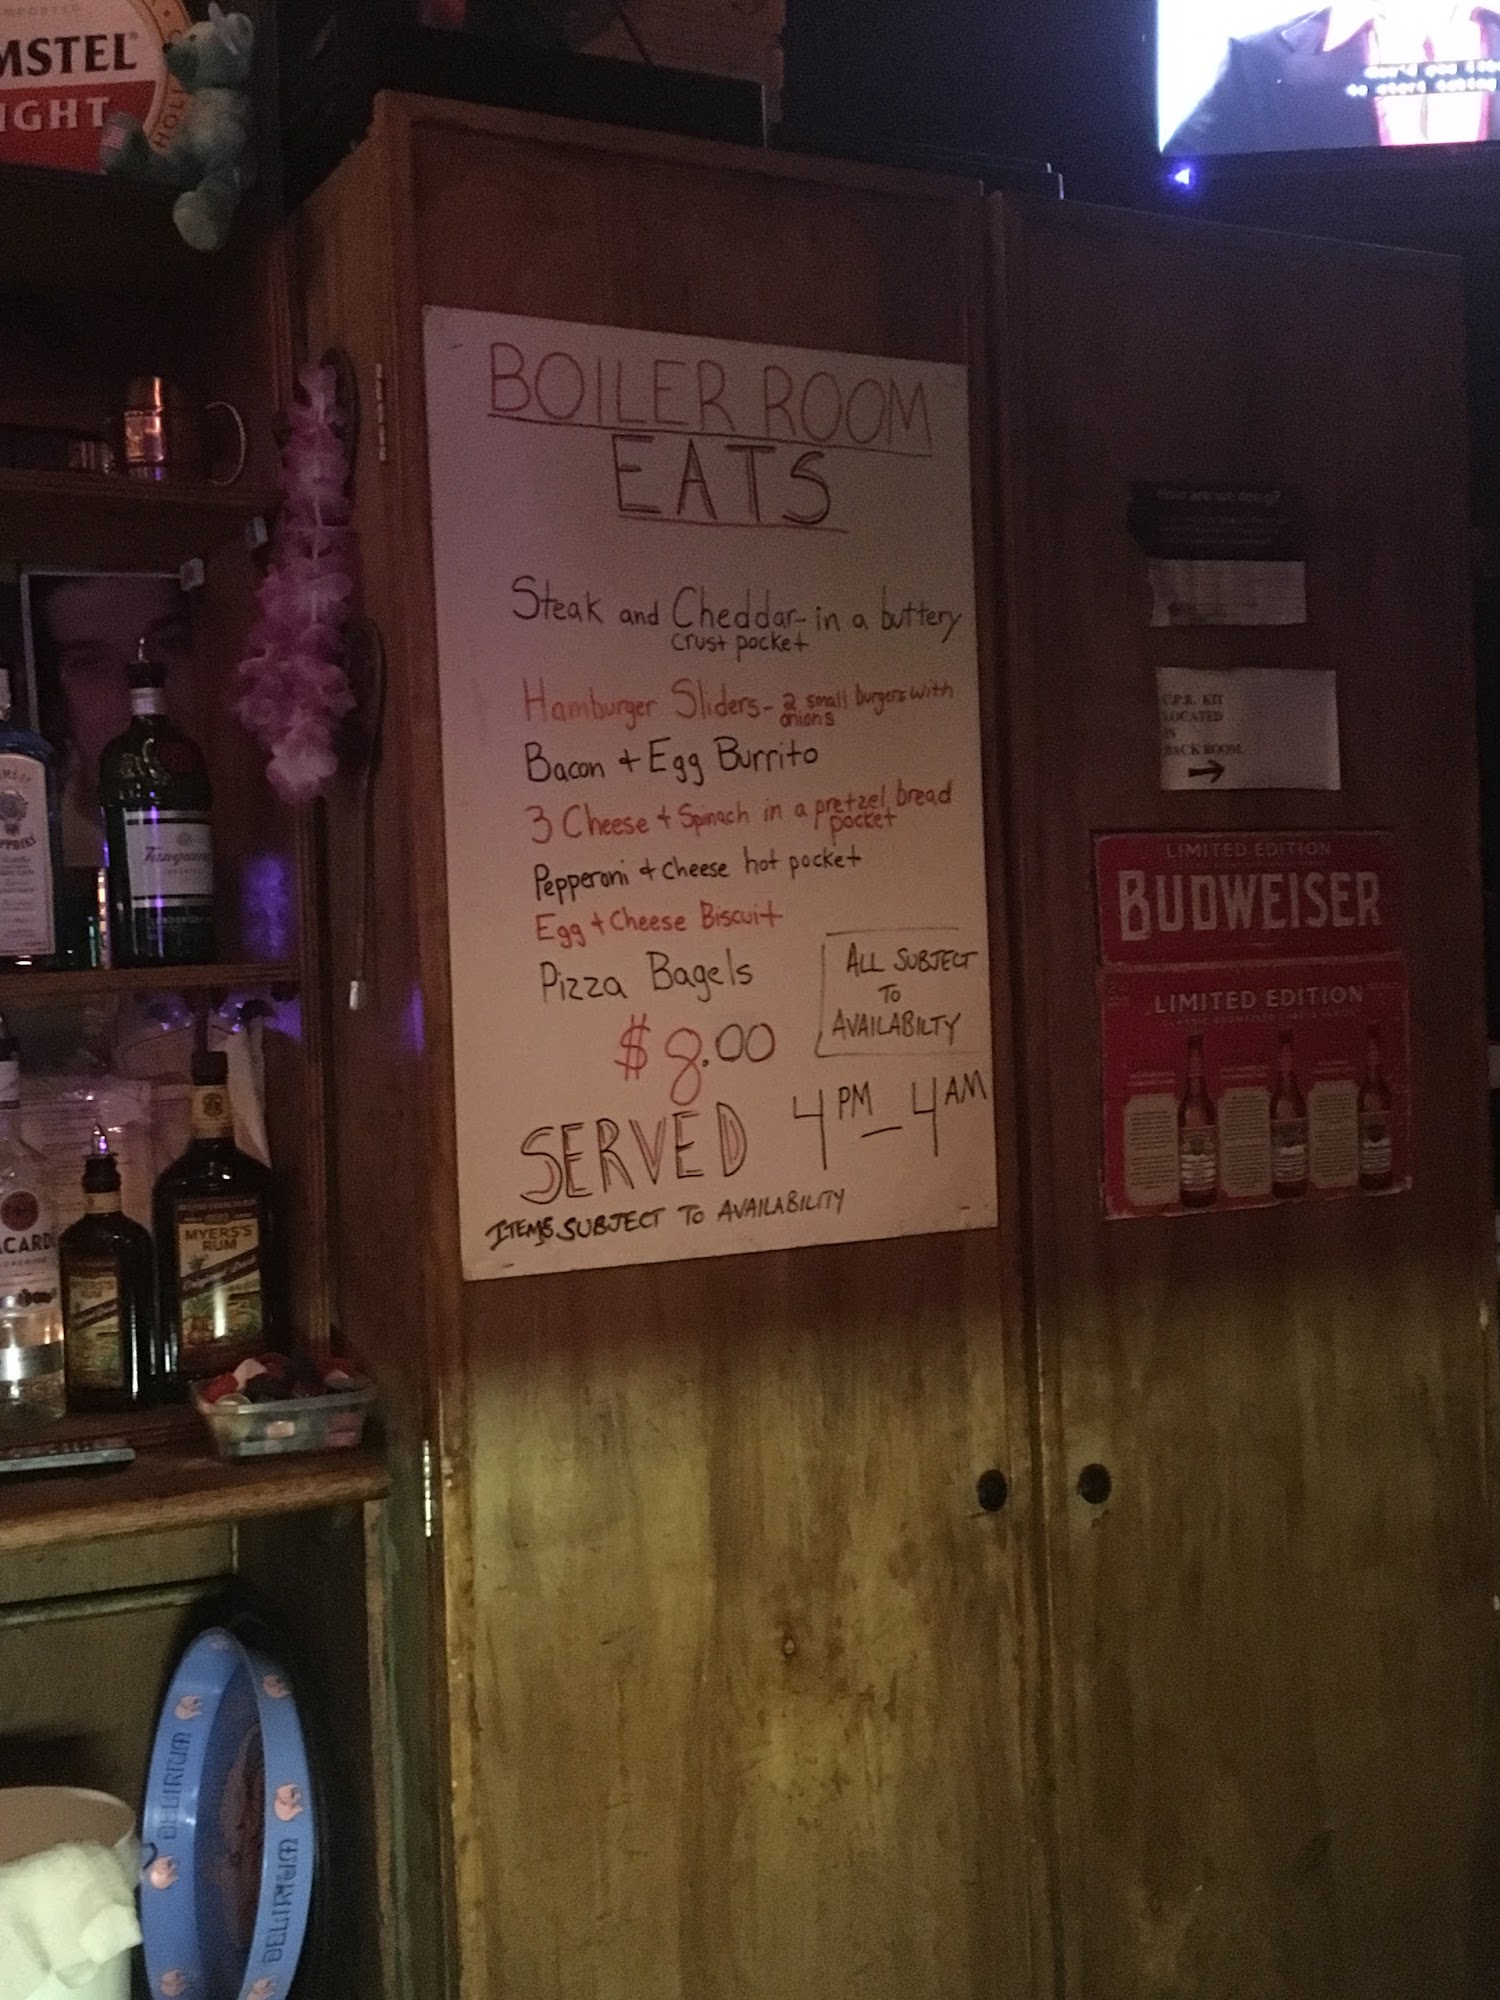 MSTEL
IGHT
HOL
BOILER ROOM
EATS
Steak and Cheddar- in a buttery
crust pocket
Hamburger Sliders- 2 small burgers with
onions
Bacon + Egg Burrito
3 Cheese + Spinach in a pretzel bread
pocket
Pepperoni + cheese hot pocket
Egg + Cheese Biscuit
Pizza Bagels
ALL SUBJECT
TO
AVAILABILTY
$8.00
SERVED 4PM-4AM
ITEMS SUBJECT TO AVAILABILITY
How are we doing?
C.P.R. KIT
LOCATED
IN
BACK ROOM
LIMITED EDITION
BUDWEISER
LIMITED EDITION
Tanqueray
MYERS'S
RUM
ACARD
DELIRIUM
DELIRIUM